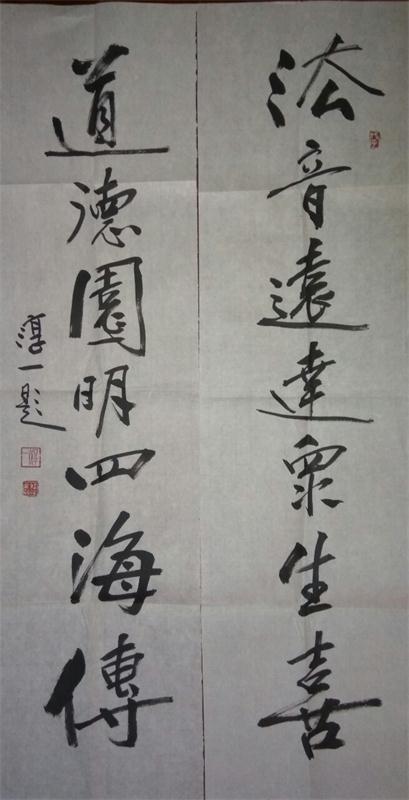 法音遠達眾生喜
道德園明四海傳
湛一題